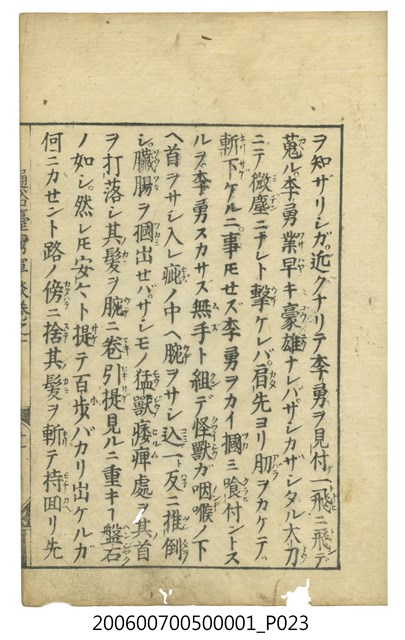 ヲ知ザリシガ近クナリテ李勇ヲ見付一飛ニ飛デ
蒐ル李勇業早キ豪雄ナレバザシカザシタル大刀
ニテ微塵ニナレト撃ケレバ肩先ヨリ肋ヲカケテ
斬下ケルニ事トモセズ李勇ヲカイ摑ミ喰付ントス
ルヲ李勇スカサズ無手ト組デ怪獣ガ咽喉ノ下
ヘ首ヲサシ入レ疵ノ中ヘ腕ヲサシ込一反ニ推倒
シ臓腸ヲ摑出セバサシモノ猛獣痿痺處ヲ其首
ヲ打落シ其髪ヲ腕ニ巻引提見ルニ重キ一盤石
ノ如シ然レトモ安々ト提テ百歩バカリ出ケルガ
何ニカせント路ノ傍ニ捨其髪ヲ斬テ持回リ先
通俗臺灣軍談巻之一
200600700500001_P023